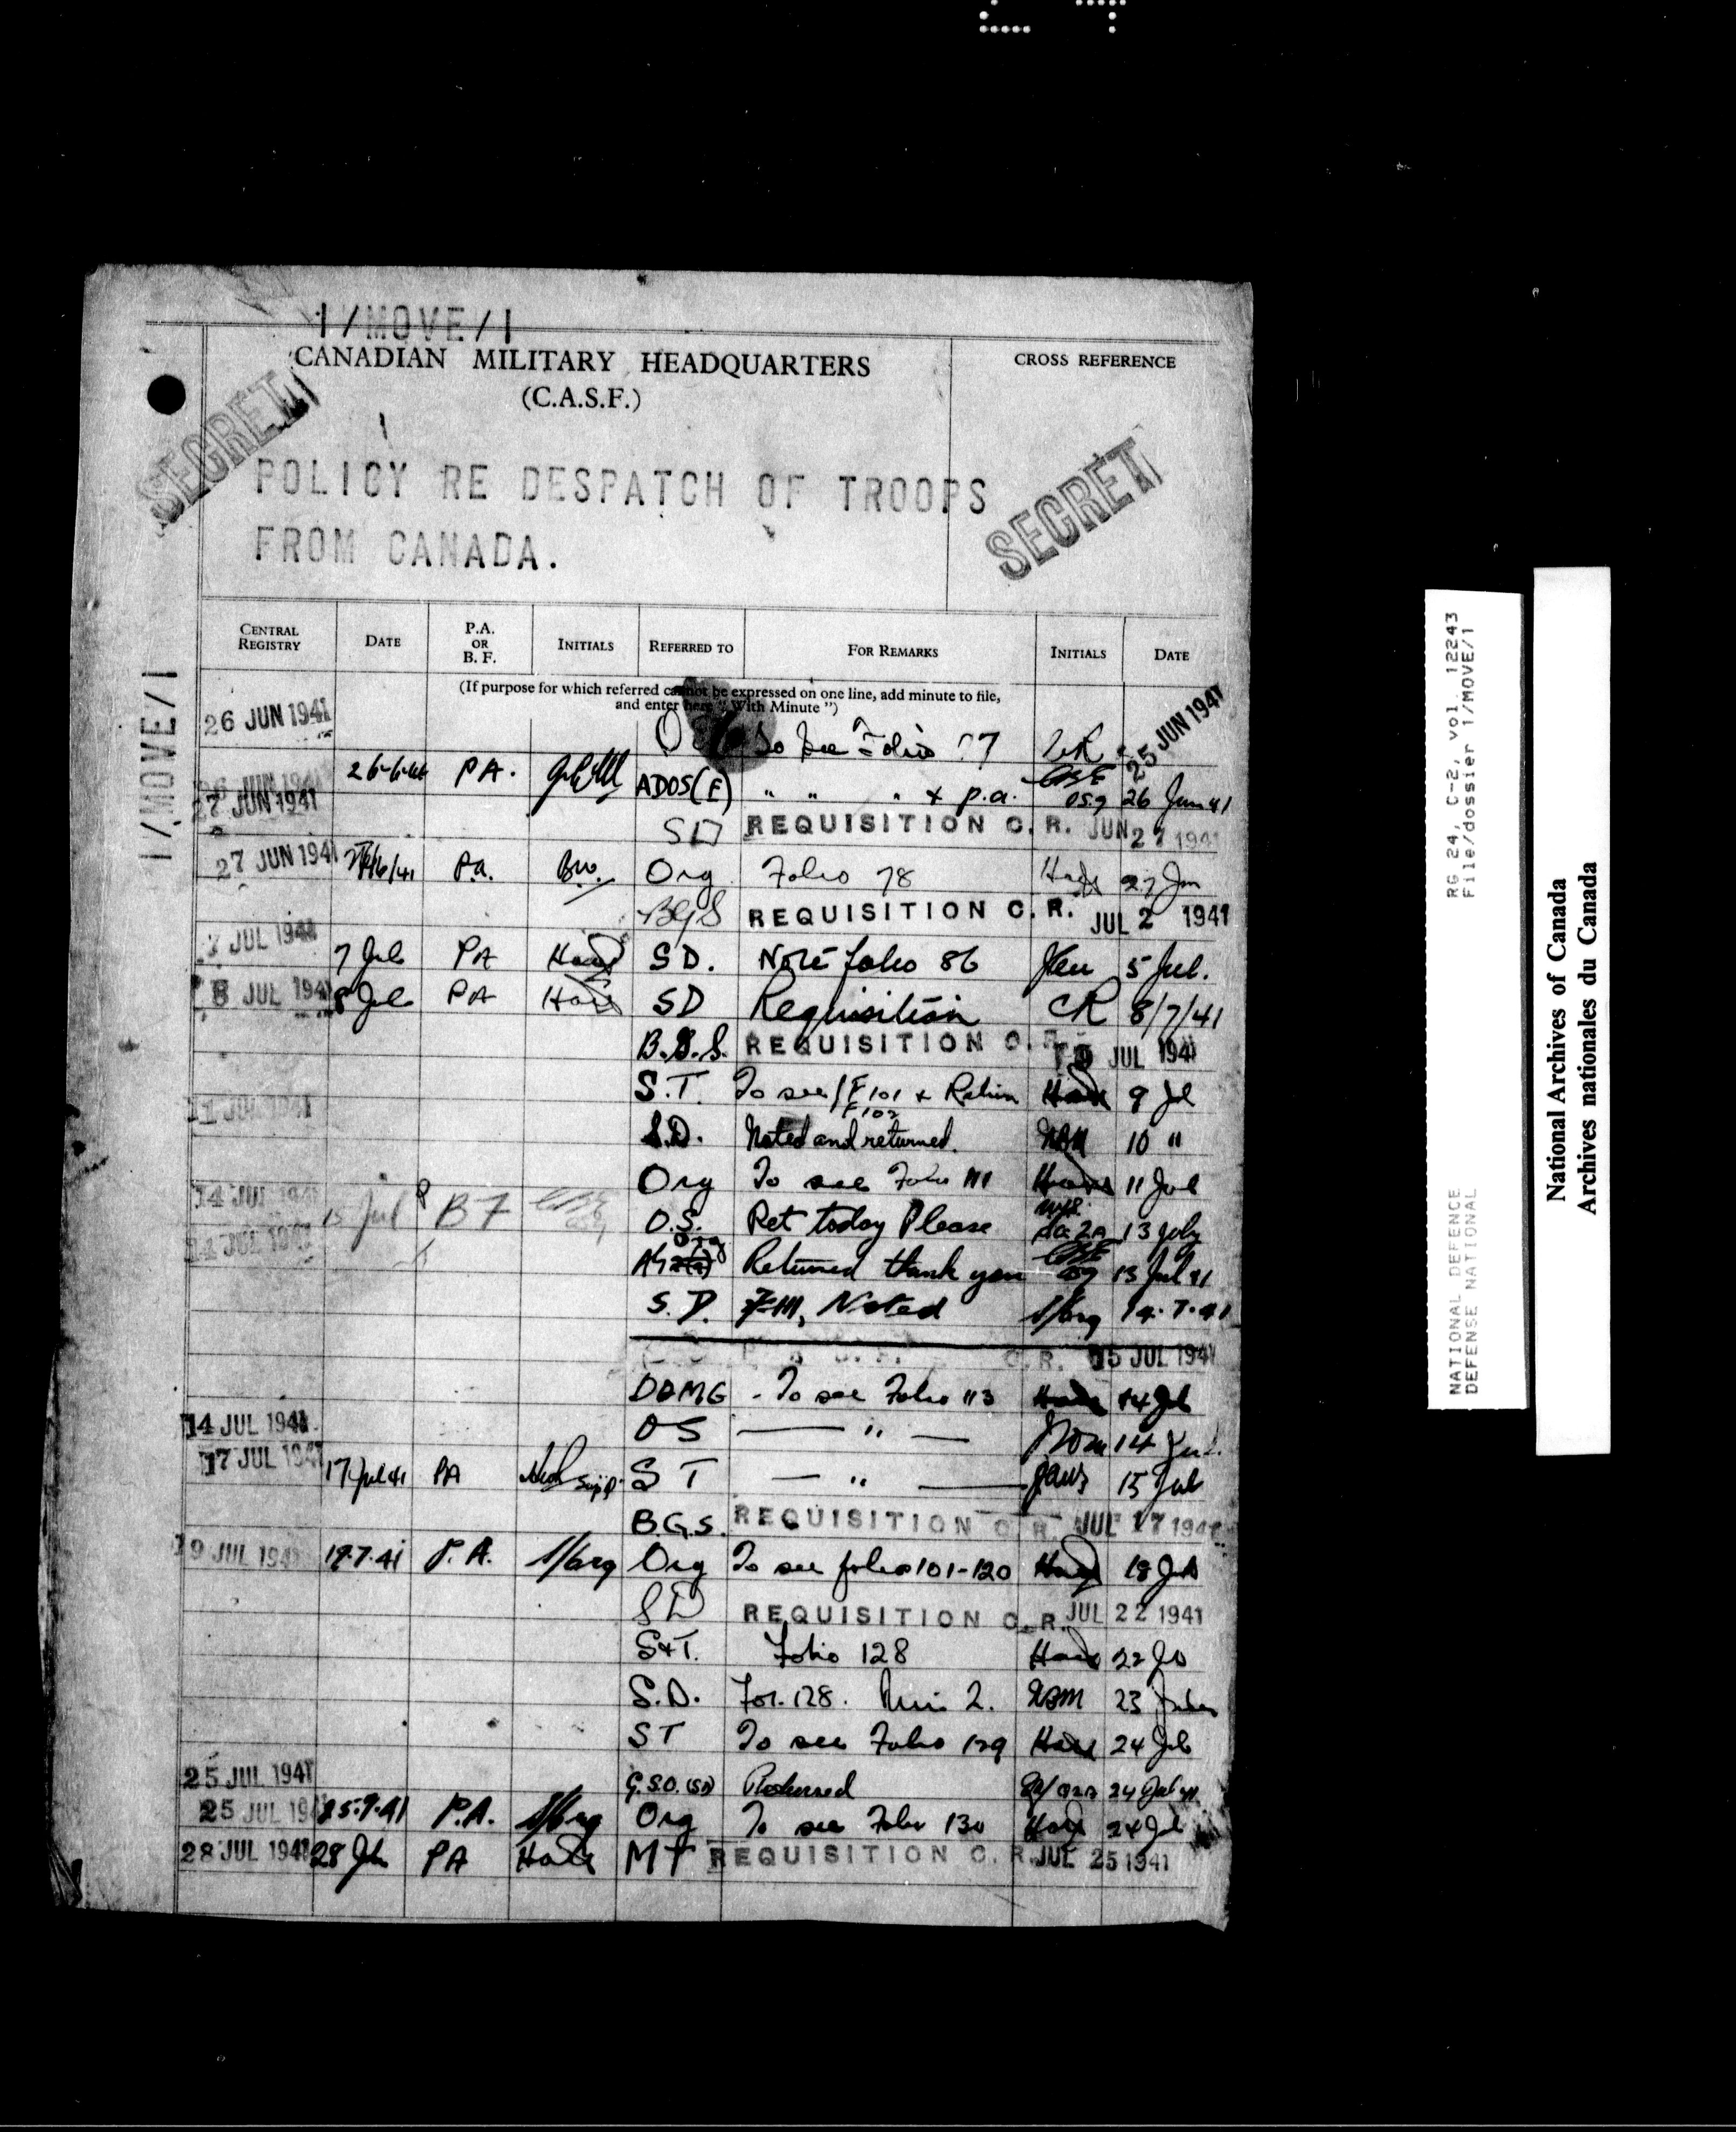 1/MOVE/1
CANADIAN MILITARY HEADQUARTERS
(C.A.S.F.)
CROSS REFERENCE
SECRET
POLICY RE DESPATCH OF TROOPS
FROM CANADA.
SECRET
1/MOVE/1
CENTRAL REGISTRY DATE P.A. OR B. F. INITIALS REFERRED TO FOR REMARKS INITIALS DATE
(If purpose for which referred cannot be expressed on one line, add minute to file,
and enter here "With Minute")
26 JUN 1941 To see Folio 77 25 JUN 1941
26 JUN 1941 P.A. ADOS(E) " " " + p.a. 26 June 41
27 JUN 1941 SD REQUISITION C. R. JUN 27 1941
27 JUN 1941 27/6/41 P.a. Bw. Org Folio 78 27 Jun
BGS REQUISITION C. R. JUL 2 1941
7 JUL 1941 7 Jul PA SD. Note folio 86 5 Jul.
8 JUL 1941 8 Jul PA SD Requisition CR 8/7/41
B.G.S. REQUISITION C. R. 10 JUL 1941
S.T. To see F101 & Return 9 Jul
F102
11 JUL 1941
S.D. Noted and returned. 10 "
Org To see Folio 111 11 Jul
14 JUL 1941 15 Jul BF O.S. Ret today Please 13 July
14 JUL 1941 Org Returned thank you 13 Jul 41
S.D. F111, Noted 14.7.41
C. R. 15 JUL 1941
DDMG - To see Folio 113 14 Jul
14 JUL 1941 OS — " — 14 Jul.
17 JUL 1941 17 Jul 41 PA ST — " — 15 Jul
B.G.S. REQUISITION C. R. JUL 17 1941
19 JUL 1941 19.7.41 P.A. Org To see folios 101-120 18 Jul
SD REQUISITION C. R. JUL 22 1941
S&T. Folio 128 22 Jul
S.D. Fol. 128. Min 2. 23
ST To see Folio 129 24 Jul
25 JUL 1941 G.S.O. (SD) Returned 24 Jul 41
25 JUL 1941 25.7.41 P.A. Org To see Folio 130 24 Jul
28 JUL 1941 28 Jul PA MT REQUISITION C. R. JUL 25 1941
NATIONAL DEFENCE RG 24, C-2, vol. 12243
DEFENSE NATIONAL File/dossier 1/MOVE/1
National Archives of Canada
Archives nationales du Canada